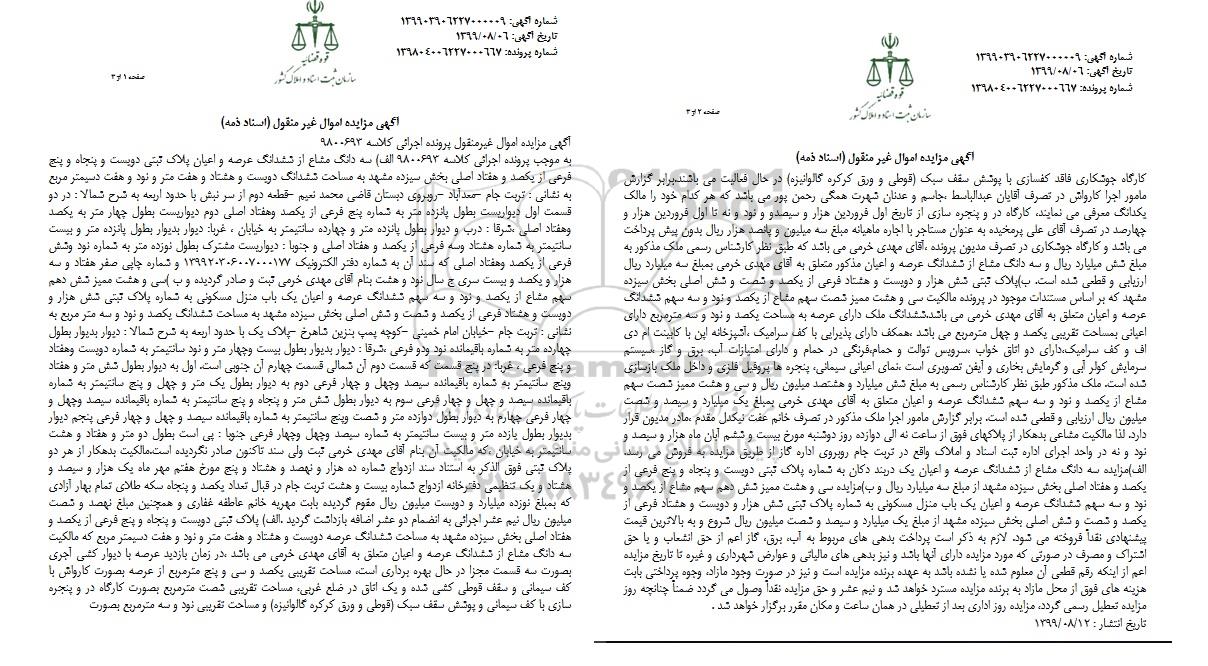 شماره آگهی: ۱۳۹۹۰۳۹۰۶۲۲۷۰۰۰۰۰۹
تاریخ آگهی: ۱۳۹۹/۰۸/۰۶
شماره پرونده: ۱۳۹۸۰۴۰۰۶۲۲۷۰۰۰۶۶۷
قوه قضائیه
سازمان ثبت اسناد و املاک کشور
صفحه ۱ از ۳
آگهی مزایده اموال غیر منقول (اسناد ذمه)
آگهی مزایده اموال غیرمنقول پرونده اجرائی کلاسه ۹۸۰۰۶۹۳
به موجب پرونده اجرائی کلاسه ۹۸۰۰۶۹۳ الف) سه دانگ مشاع از ششدانگ عرصه و اعیان پلاک ثبتی دویست و پنجاه و پنج
فرعی از یکصد و هفتاد اصلی بخش سیزده مشهد به مساحت ششدانگ دویست و هشتاد و هفت متر و نود و هفت دسیمتر مربع
به نشانی : تربت جام –معدآباد –روبروی دبستان قاضی محمد نعیم –قطعه دوم از سر نبش با حدود اربعه به شرح شمالا : در دو
قسمت اول دیواریست بطول پانزده متر به شماره پنج فرعی از یکصد وهفتاد اصلی دوم دیواریست بطول چهار متر به یکصد
وهفتاد اصلی ،شرقا : درب و دیوار بطول پانزده متر و چهارده سانتیمتر به خیابان ، غربا: دیوار بدیوار بطول پانزده متر و بیست
سانتیمتر به شماره هشتاد وسه فرعی از یکصد و هفتاد اصلی و جنوبا : دیواریست مشترک بطول نوزده متر به شماره نود وشش
فرعی از یکصد وهفتاد اصلی که سند آن به شماره دفتر الکترونیک ۱۳۹۹۲۰۳۰۶۰۰۷۰۰۰۱۷۷ و شماره چاپی صفر هفتاد و سه
هزار و یکصد و بیست سری ج سال نود و هشت بنام آقای مهدی خرمی ثبت و صادر گردیده و ب )سی و هشت ممیز شش دهم
سهم مشاع از یکصد و نود و سه سهم ششدانگ عرصه و اعیان یک باب منزل مسکونی به شماره پلاک ثبتی شش هزار و
دویست و هشتاد فرعی از یکصد و شصت و شش اصلی بخش سیزده مشهد به مساحت ششدانگ یکصد و نود و سه متر مربع به
نشانی : تربت جام –خیابان امام خمینی –کوچه پمپ بنزین شاهرخ –پلاک یک با حدود اربعه به شرح شمالا : دیوار بدیوار بطول
چهارده متر به شماره باقیمانده نود ودو فرعی ،شرقا : دیوار بدیوار بطول بیست وچهار متر و نود سانتیمتر به شماره دویست وهفتاد
و پنج فرعی ، غربا: در پنج قسمت که قسمت دوم آن شمالی قسمت چهارم آن جنوبی است، اول به دیوار بطول شش متر و هفتاد
وپنج سانتیمتر به شماره باقیمانده سیصد وچهل و چهار فرعی دوم به دیوار بطول یک متر و چهل و پنج سانتیمتر به شماره
باقیمانده سیصد و چهل و چهار فرعی سوم به دیوار بطول شش متر و پنجاه و پنج سانتیمتر به شماره باقیمانده سیصد وچهل و
چهار فرعی چهارم به دیوار بطول دوازده متر و شصت وپنج سانتیمتر به شماره باقیمانده سیصد و چهل و چهار فرعی پنجم دیوار
بدیوار بطول یازده متر و بیست سانتیمتر به شماره سیصد وچهل وچهار فرعی جنوبا : پی است بطول دو متر و هفتاد و هشت
سانتیمتر به خیابان .که مالکیت آن بنام آقای مهدی خرمی ثبت ولی سند تاکنون صادر نگردیده است.مالکیت بدهکار از هر دو
پلاک ثبتی فوق الذکر به استناد سند ازدواج شماره ده هزار و نهصد و هشتاد و پنج مورخ هفتم مهر ماه یک هزار و سیصد و
هشتاد و یک تنظیمی دفترخانه ازدواج شماره بیست و هشت تربت جام در قبال تعداد یکصد و پنجاه سکه طلای تمام بهار آزادی
که بمبلغ نوزده میلیارد و دویست میلیون ریال مقوم گردیده بابت مهریه خانم عاطفه غفاری و همچنین مبلغ نهصد و شصت
میلیون ریال نیم عشر اجرائی به انضمام دو عشر اضافه بازداشت گردید ،الف) پلاک ثبتی دویست و پنجاه و پنج فرعی از یکصد و
هفتاد اصلی بخش سیزده مشهد به مساحت ششدانگ عرصه دویست و هشتاد و هفت متر و نود و هفت دسیمتر مربع که مالکیت
سه دانگ مشاع از ششدانگ عرصه و اعیان متعلق به آقای مهدی خرمی می باشد ،در زمان بازدید عرصه با دیوار کشی آجری
بصورت سه قسمت مجزا در حال بهره برداری است، مساحت تقریبی یکصد و سی و پنج مترمربع از عرصه بصورت کارواش با
کف سیمانی و سقف قوطی کشی شده و یک اتاق در ضلع غربی، مساحت تقریبی شصت مترمربع بصورت کارگاه در و پنجره
سازی با کف سیمانی و پوشش سقف سبک (قوطی و ورق کرکره گالوانیزه) و مساحت تقریبی نود و سه مترمربع بصورت
شماره آگهی: ۱۳۹۹۰۳۹۰۶۲۲۷۰۰۰۰۰۹
تاریخ آگهی: ۱۳۹۹/۰۸/۰۶
شماره پرونده: ۱۳۹۸۰۴۰۰۶۲۲۷۰۰۰۶۶۷
قوه قضائیه
سازمان ثبت اسناد و املاک کشور
صفحه ۲ از ۳
آگهی مزایده اموال غیر منقول (اسناد ذمه)
کارگاه جوشکاری فاقد کفسازی با پوشش سقف سبک (قوطی و ورق کرکره گالوانیزه) در حال فعالیت می باشند.برابر گزارش
مامور اجرا کارواش در تصرف آقایان عبدالباسط ،جاسم و عدنان شهرت همگی رحمن پور می باشد که هر کدام خود را مالک
یکدانگ معرفی می نمایند، کارگاه در و پنجره سازی از تاریخ اول فروردین هزار و سیصدو و نود و نه تا اول فروردین هزار و
چهارصد در تصرف آقای علی پرمخیده به عنوان مستاجر با اجاره ماهیانه مبلغ سه میلیون و پانصد هزار ریال بدون پیش پرداخت
می باشد و کارگاه جوشکاری در تصرف مدیون پرونده ،آقای مهدی خرمی می باشد که طبق نظر کارشناس رسمی ملک مذکور به
مبلغ شش میلیارد ریال و سه دانگ مشاع از ششدانگ عرصه و اعیان مذکور متعلق به آقای مهدی خرمی بمبلغ سه میلیارد ریال
ارزیابی و قطعی شده است. ب)پلاک ثبتی شش هزار و دویست و هشتاد فرعی از یکصد و شصت و شش اصلی بخش سیزده
مشهد که بر اساس مستندات موجود در پرونده مالکیت سی و هشت ممیز شصت سهم مشاع از یکصد و نود و سه سهم ششدانگ
عرصه و اعیان متعلق به آقای مهدی خرمی می باشد.ششدانگ ملک دارای عرصه به مساحت یکصد و نود و سه مترمربع دارای
اعیانی بمساحت تقریبی یکصد و چهل مترمربع می باشد ،همکف دارای پذیرایی با کف سرامیک ،آشپزخانه اپن با کابینت ام دی
اف و کف سرامیک،دارای دو اتاق خواب ،سرویس توالت و حمام،فرنگی در حمام و دارای امتیازات آب، برق و گاز ،سیستم
سرمایش کولر آبی و گرمایش بخاری و آیفن تصویری است ،نمای اعیانی سیمانی، پنجره ها پروفیل فلزی و داخل ملک بازسازی
شده است، ملک مذکور طبق نظر کارشناس رسمی به مبلغ شش میلیارد و هشتصد میلیون ریال و سی و هشت ممیز شصت سهم
مشاع از یکصد و نود و سه سهم ششدانگ عرصه و اعیان متعلق به آقای مهدی خرمی بمبلغ یک میلیارد و سیصد و شصت
میلیون ریال ارزیابی و قطعی شده است. برابر گزارش مامور اجرا ملک مذکور در تصرف خانم عفت نیکدل مقدم ،مادر مدیون قرار
دارد. لذا مالکیت مشاعی بدهکار از پلاکهای فوق از ساعت نه الی دوازده روز دوشنبه مورخ بیست و ششم آبان ماه هزار و سیصد و
نود و نه در واحد اجرای اداره ثبت اسناد و املاک واقع در تربت جام روبروی اداره گاز از طریق مزایده به فروش می رسد
الف)مزایده سه دانگ مشاع از ششدانگ عرصه و اعیان یک دربند دکان به شماره پلاک ثبتی دویست و پنجاه و پنج فرعی از
یکصد و هفتاد اصلی بخش سیزده مشهد از مبلغ سه میلیارد ریال و ب)مزایده سی و هشت ممیز شش دهم سهم مشاع از یکصد و
نود و سه سهم ششدانگ عرصه و اعیان یک باب منزل مسکونی به شماره پلاک ثبتی شش هزار و دویست و هشتاد فرعی از
یکصد و شصت و شش اصلی بخش سیزده مشهد از مبلغ یک میلیارد و سیصد و شصت میلیون ریال شروع و به بالاترین قیمت
پیشنهادی نقداً فروخته می شود. لازم به ذکر است پرداخت بدهی های مربوط به آب، برق، گاز اعم از حق انشعاب و یا حق
اشتراک و مصرف در صورتی که مورد مزایده دارای آنها باشد و نیز بدهی های مالیاتی و عوارض شهرداری و غیره تا تاریخ مزایده
اعم از اینکه رقم قطعی آن معلوم شده یا نشده باشد به عهده برنده مزایده است و نیز در صورت وجود مازاد، وجوه پرداختی بابت
هزینه های فوق از محل مازاد به برنده مزایده مسترد خواهد شد و نیم عشر و حق مزایده نقداً وصول می گردد ضمناً چنانچه روز
مزایده تعطیل رسمی گردد، مزایده روز اداری بعد از تعطیلی در همان ساعت و مکان مقرر برگزار خواهد شد .
تاریخ انتشار : ۱۳۹۹/۰۸/۱۲